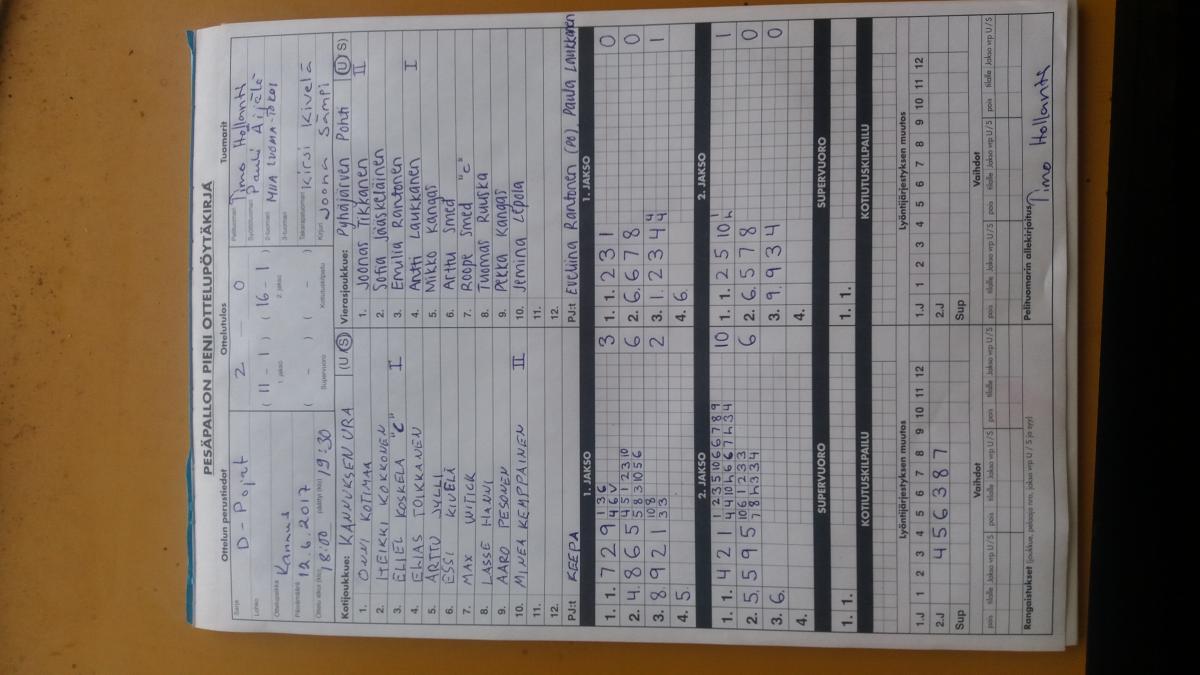 PESÄPALLON PIENI OTTELUPÖYTÄKIRJA
Ottelun perustiedot Ottelutulos Tuomarit
Sarja D-Pojat
Lohko
Ottelupaikka Kannus
Päivämäärä 12.6.2017
Ottelu alkoi (klo) 18:00 päättyi (klo) 19:30
2 - 0
( 11 - 1 ) ( 16 - 1 )
1. jakso 2. jakso
( - ) ( - )
Supervuoro Kotiutuskilpailu
Pelituomari Timo Hollanti
Syöttötuomari Pauli Äijälä
2-tuomari MIIA LUOMA-
3-tuomari
Takarajatuomari Kirsi Kivelä
Kirjuri Joona Sämpi
Kotijoukkue: KANNUKSEN URA (U/S)
1. ONNI KOTIMAA
2. HEIKKI KOKKONEN
3. ELIEL KOSKELA "C" I
4. ELIAS TOIKKANEN
5. ARTTU JYLLI
6. ESSI KIVELÄ
7. MAX WITICK
8. LASSE HANNI
9. AARO PESONEN
10. MINEA KEMPPAINEN II
11.
12.
PJ:t KEEPA
Vierasjoukkue: Pyhäjärven Pohti (U/S)
1. Joonas Tikkanen II
2. Sofia Jääskeläinen
3. Emilia Rantonen
4. Antti Laukkanen I
5. Mikko Kangas
6. Arttu Smed
7. Roope Smed "C"
8. Tuomas Ruuska
9. Pekka Kangas
10. Jemina Lepola
11.
12.
PJ:t Eveliina Rantonen (PO), Paula Laukkanen
1. JAKSO 1. JAKSO
1. 1. 7 2 9 3
2. 4. 8 6 5 6
3. 8. 9 2 1 2
4. 5.
1. 1. 2 3 1 0
2. 6. 6 7 8 0
3. 1. 2 3 4 4 1
4. 6.
2. JAKSO 2. JAKSO
1. 1. 4 2 1 10
2. 5. 5 9 5 6
3. 6.
4.
1. 1. 2 5 10 1
2. 6. 5 7 8 0
3. 9. 9 3 4 0
4.
SUPERVUORO SUPERVUORO
1. 1. 1. 1.
KOTIUTUSKILPAILU KOTIUTUSKILPAILU
Lyöntijärjestyksen muutos Lyöntijärjestyksen muutos
1.J 1 2 3 4 5 6 7 8 9 10 11 12
2.J 4 5 6 3 8 7
Sup
1.J 1 2 3 4 5 6 7 8 9 10 11 12
2.J
Sup
Vaihdot Vaihdot
pois tilalle Jakso vrp U / S pois tilalle Jakso vrp U / S pois tilalle Jakso vrp U / S pois tilalle Jakso vrp U / S
Rangaistukset (joukkue, pelaaja nro, jakso, vrp U / S ja syy)
Pelituomarin allekirjoitus
Timo Hollanti